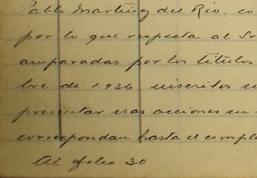 Pablo Martínez del Río, co
por lo que respecta al Sr
amparadas por los títulos
bre de 1936 suscritos en
presentar esas acciones en
correspondan hasta el comple
Al folio 30